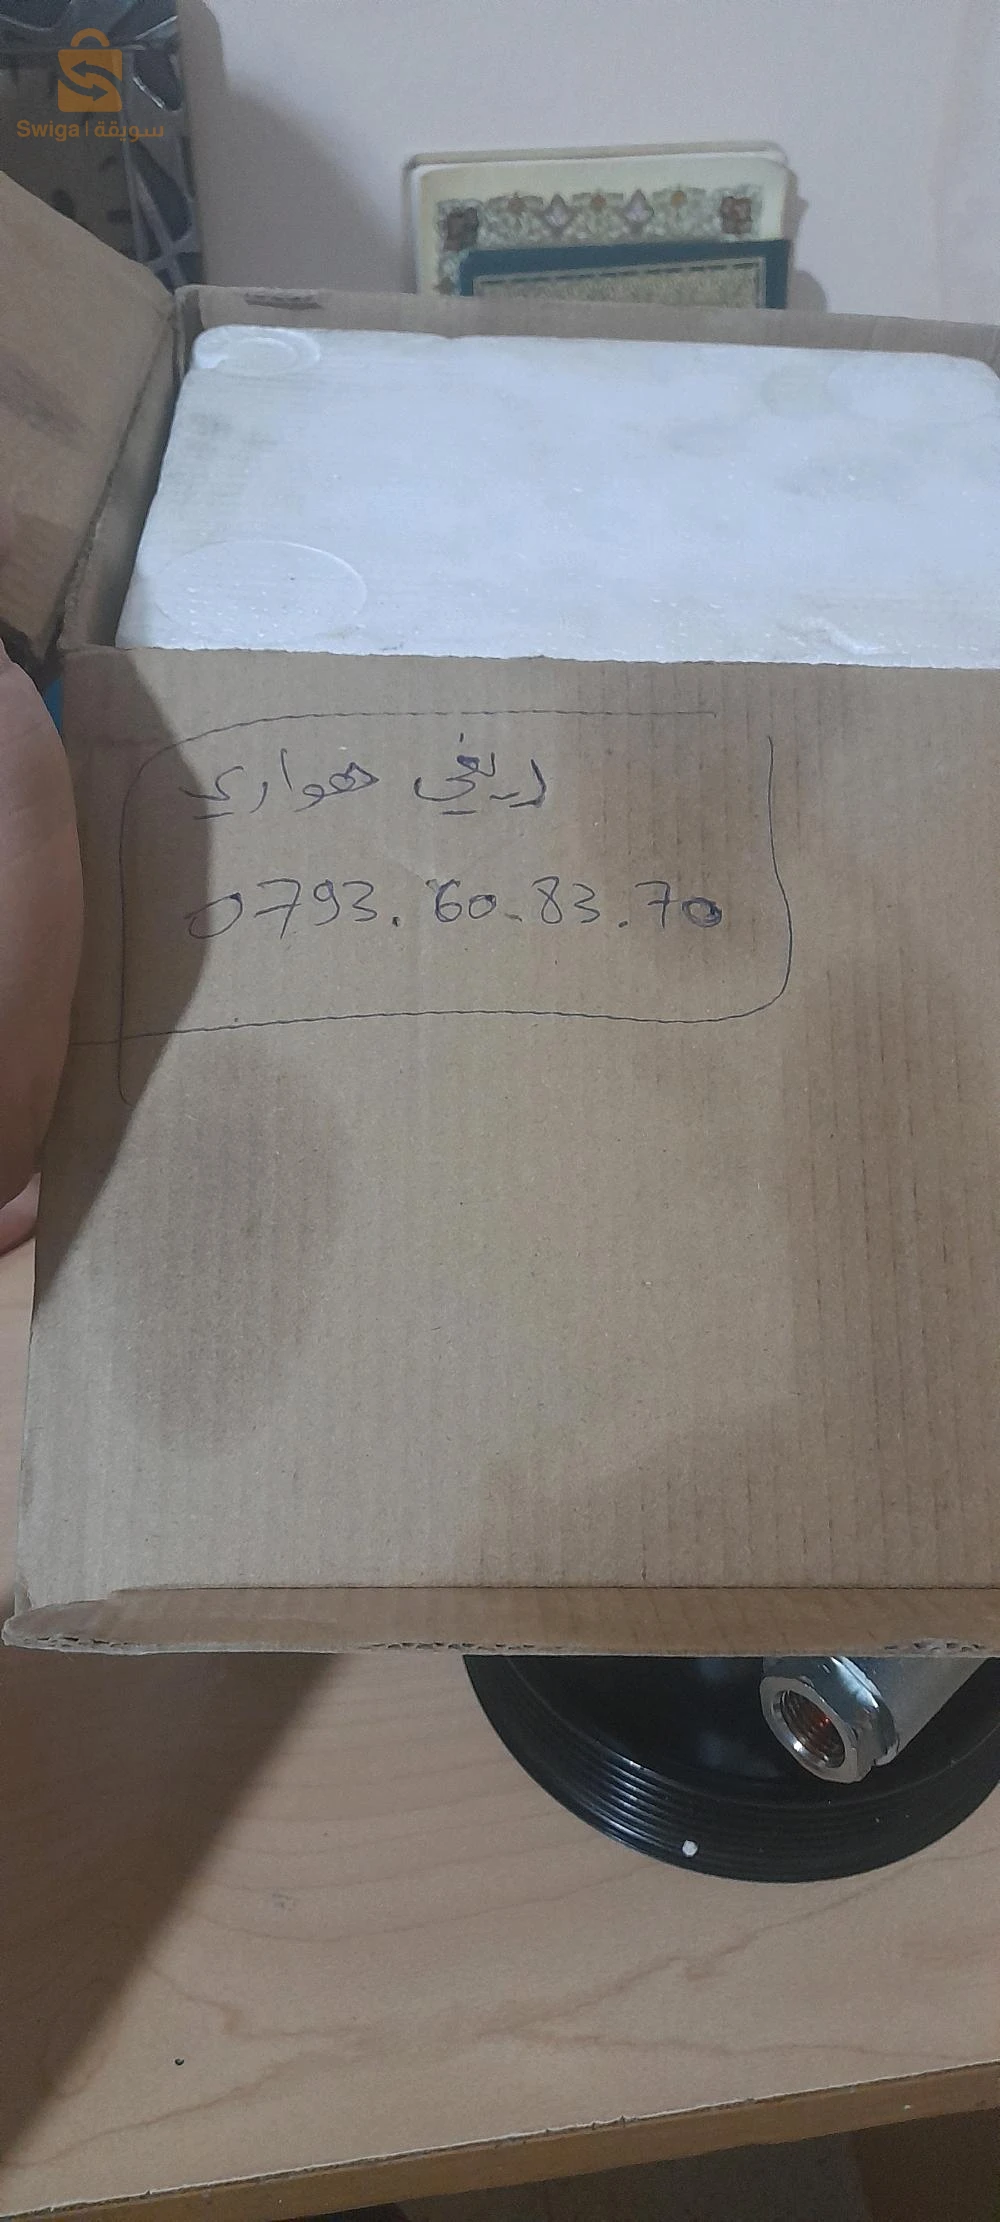 Swiga | سويقة
ريفي هواري
0793.60.83.70